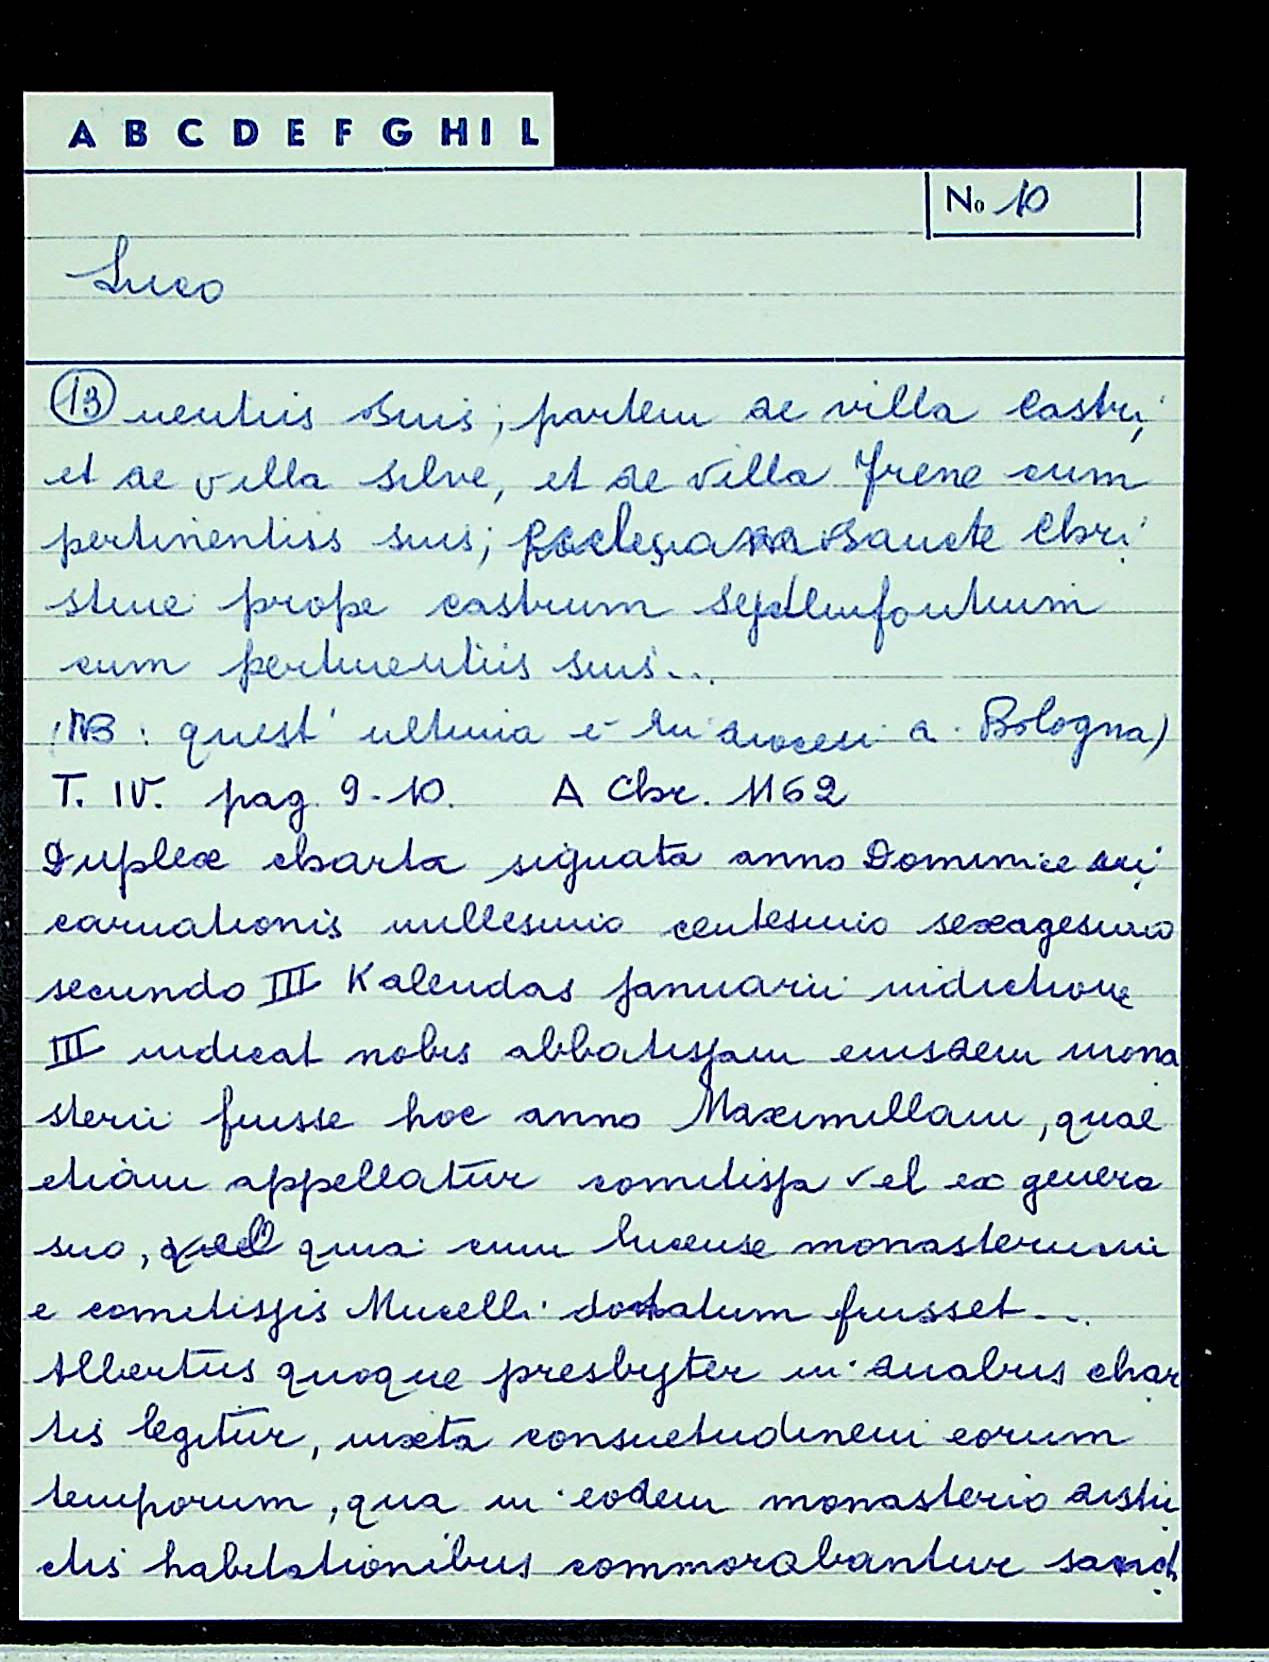 A B C D E F G H I L
No 10
Luco
(13) nentiis suis; partem de villa Castri,
et de villa Silve, et de villa Frene cum
pertinentiis suis; Ecclesiam Sancte Chri
stine prope castrum
cum pertinentiis suis...
(NB: quest' ultima è in diocesi a Bologna)
T. IV. pag. 9-10. A Chr. 1162
Duplex charta signata anno Dominice in
carnationis millesimo centesimo sexagesimo
secundo III Kalendas Januarii indictione
III indicat nobis abbatissam eiusdem mona
sterii fuisse hoc anno Maximillam, quae
etiam appellatur comitissa vel ex genere
suo, vel quia cum lucense monasterium
e comitissis Mucelli dotatum fuisset...
Albertus quoque presbyter in duabus char
tis legitur, iuxta consuetudinem eorum
temporum, qua in eodem monasterio disti
ctis habitationibus commorabantur sanct